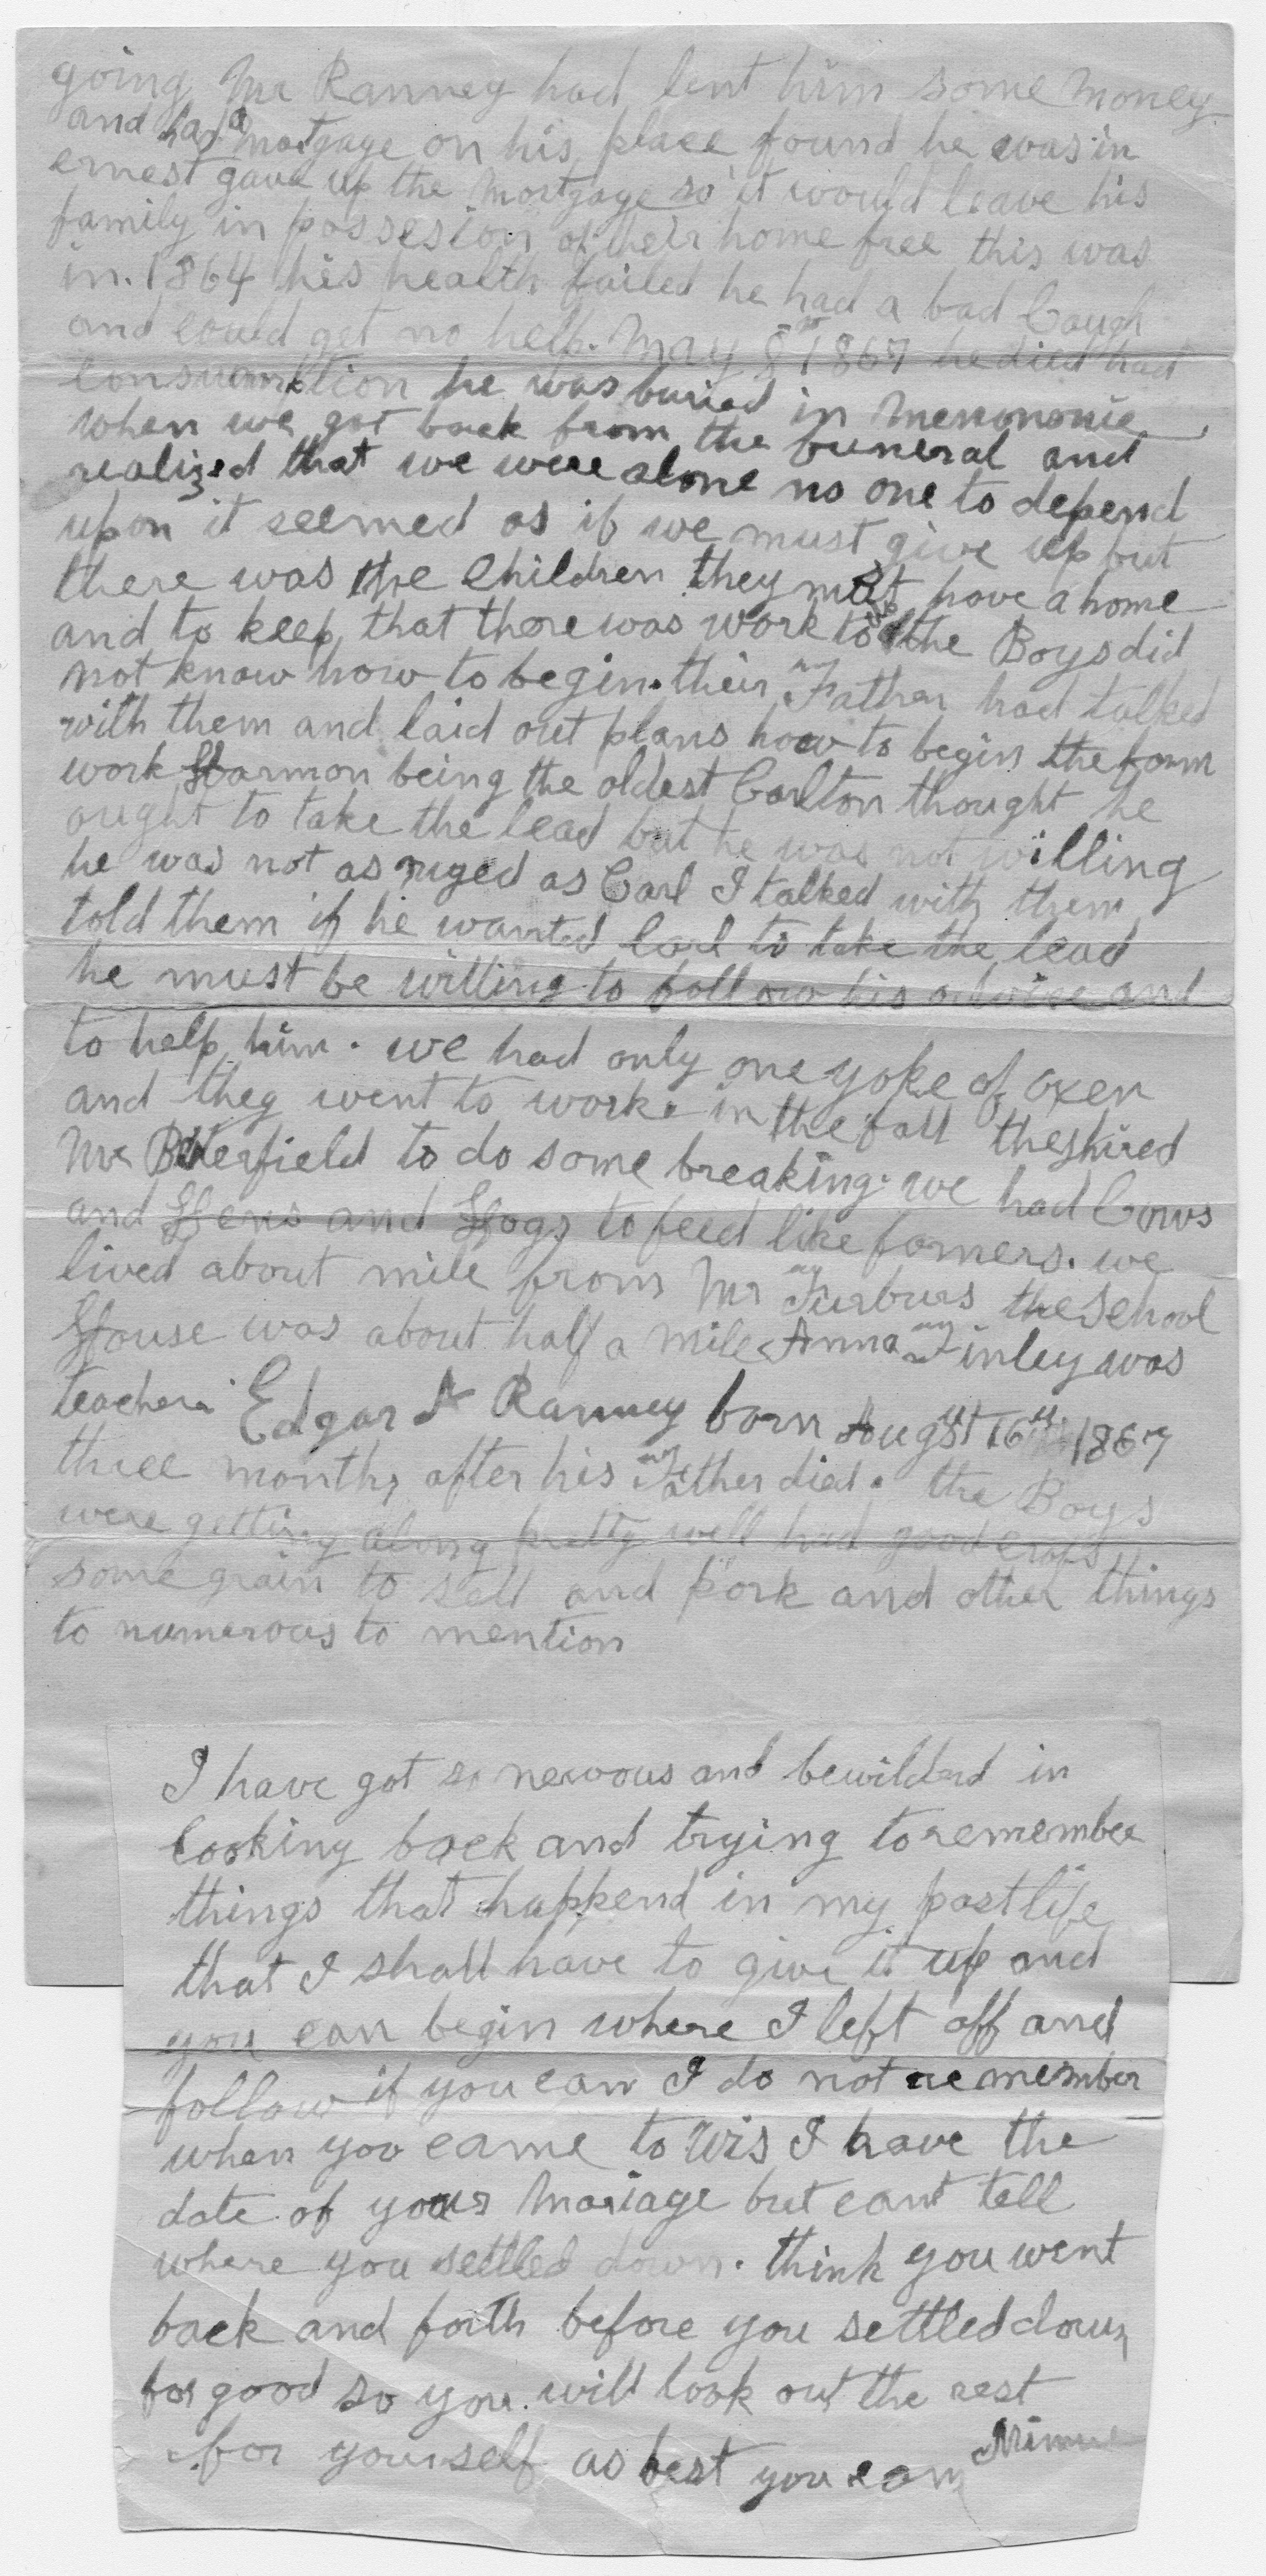 going Mr Ranney had lent him some money
and had a Mortgage on his place found he was in
ernest gave up the Mortgage so it would leave his
family in possesion of their home free this was
in. 1864 his health failed he had a bad Cough
and could get no help. May 8 1867 he died had
Consumption he was buried in Menomonie
when we got back from the funeral and
realized that we were alone no one to depend
upon it seemed as if we must give up but
there was the Children they must have a home
and to keep that there was work to do the Boys did
not know how to begin. their Father had talked
with them and laid out plans how to begin the farm
work Harmon being the oldest Carlton thought he
ought to take the lead but he was not willing
he was not as ruged as Carl I talked with them
told them if he wanted Carl to take the lead
he must be willing to follow his advice and
to help him. we had only one yoke of oxen
and they went to work. in the fall they hired
Mr Buterfield to do some breaking. we had Cows
and Hens and Hogs to feed like farmers. we
lived about mile from Mr Furburs the School
House was about half a mile Anna Finley was
teacher. Edgar A Ranney born August 16 1867
three months after his Father died. the Boys
were getting along pretty well had good crops
some grain to sell and pork and other things
to numerous to mention
I have got so nervous and bewilderd in
looking back and trying to remember
things that happend in my past life
that I shall have to give it up and
you can begin where I left off and
follow if you can I do not remember
when you came to Wis I have the
date of your Mariage but cant tell
where you settled down. think you went
back and forth before you settled down
for good so you will look out the rest
for yourself as best you can